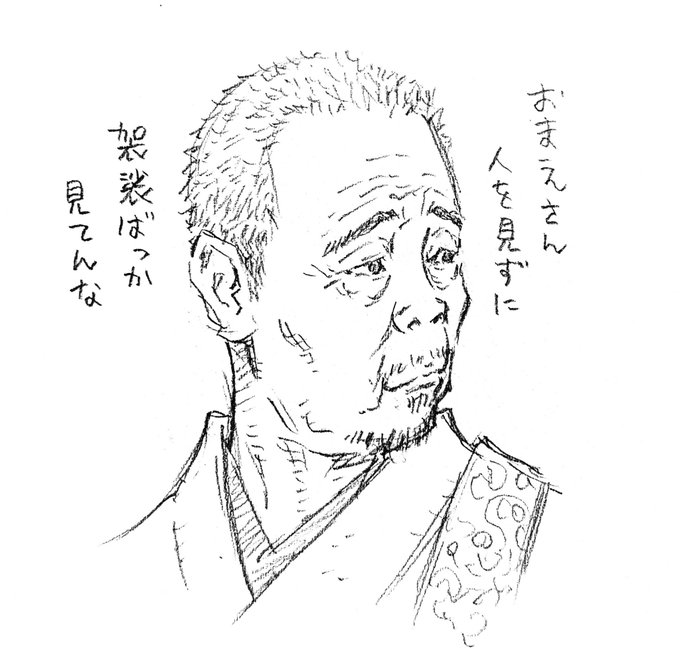 おまえさん
人を見ずに
袈裟ばっか
見てんな